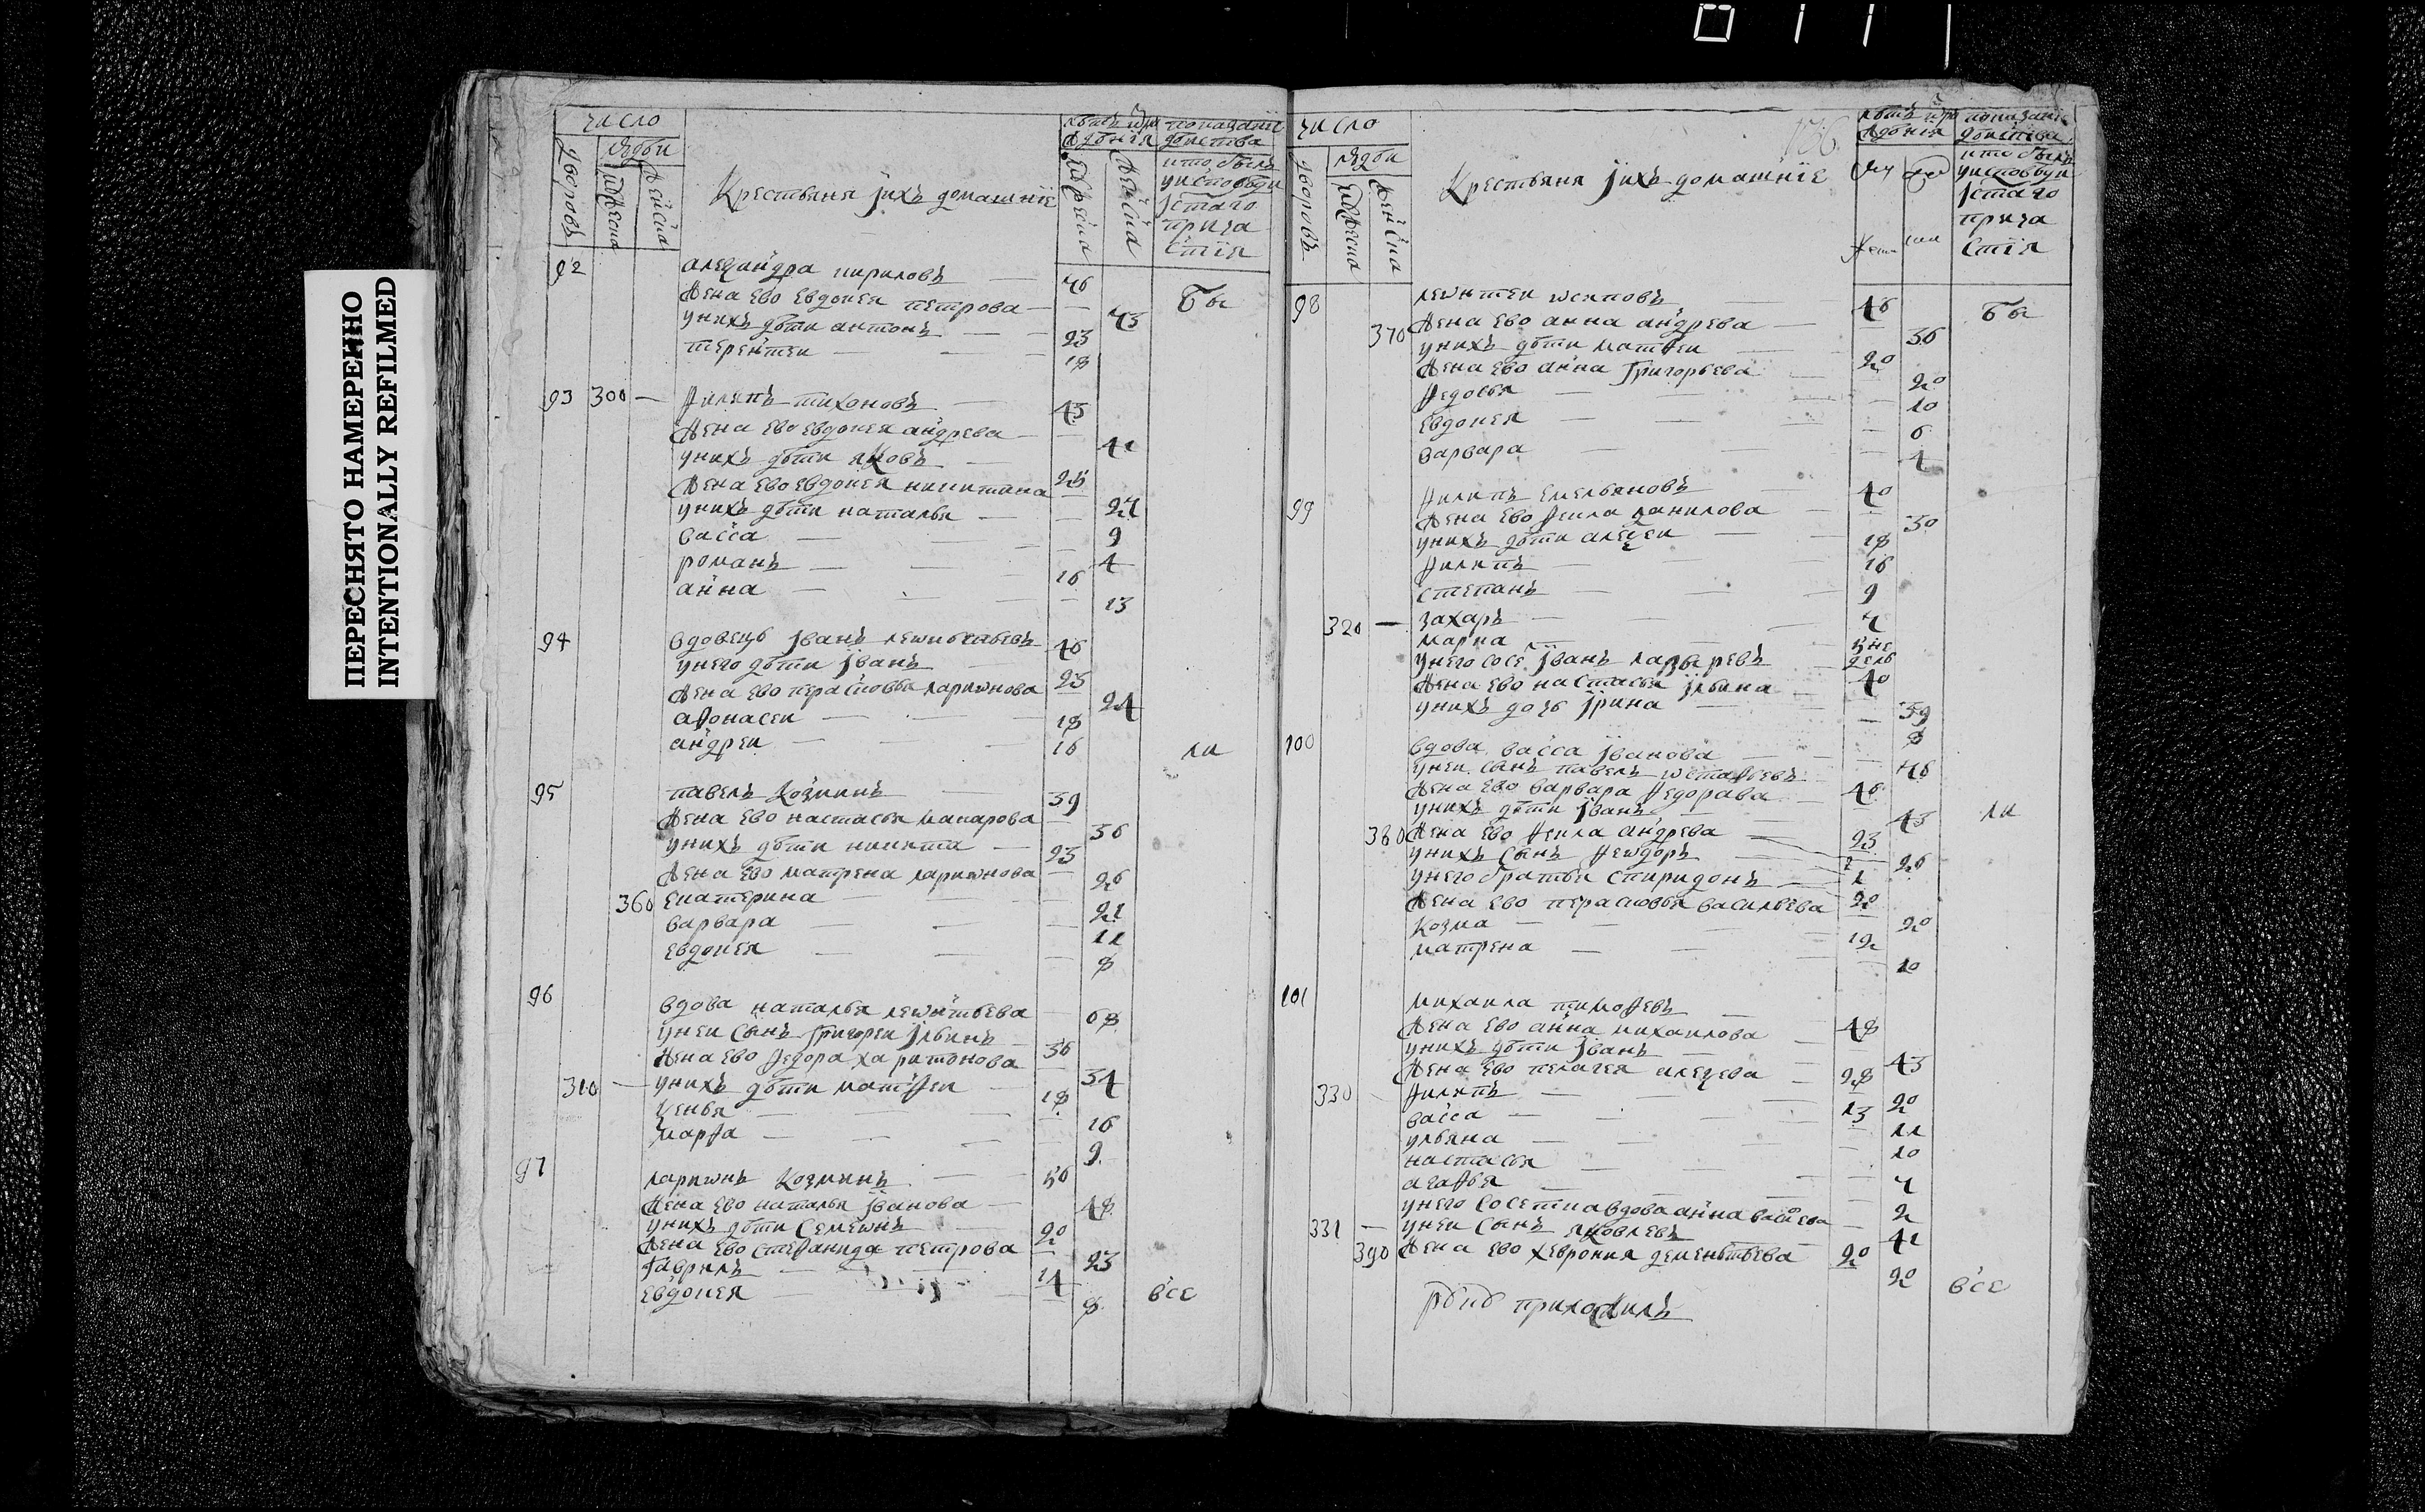 ПЕРЕСНЯТО НАМЕРЕННО
INTENTIONALLY REFILMED
число
дворовъ
людей
мужеска
женска
Крестьяня iихъ домашнiе
мужеска
женска
бытъ
92 александра кириловъ 46
Жена ево евдокея петрова 43 Бы
унихъ дѣти антонъ 23
терентеи 18
93 300 Филипъ тихоновъ 43
Жена ево евдокея андрева 41
унихъ дѣти яковъ 25
Жена ево евдокея никитина 24
унихъ дѣти наталья 9
васса 4
романъ 16
анна 13
94 вдовецъ iванъ 46
унего дѣти iванъ 23
Жена ево парасковья лариwнова 24
афонасеи 18
андреи 16 ли
95 павелъ Козминъ 39
Жена ево настасья макарова 36
унихъ дѣти никита 23
Жена ево матрена лариwнова 26
360 екатерина 21
варвара 11
евдокея 8
96 вдова наталья леwнтьева 68
унеи сынъ григореи iльинъ 36
Жена ево Федора харитонова 34
310 унихъ дѣти матфеи 18
ѯенья 16
марфа 9
97 лариwнъ Козминъ 50
Жена ево наталья iванова 48
унихъ дѣти Семеwнъ 20
Жена ево стефанида петрова 23
гаврилъ 14
евдокея 8 все
136
число
дворовъ
людей
мужеска
женска
Крестьяня iихъ домашнiе
98 леwнтеи wсиповъ 46 Бы
370 Жена ево анна андрева 36
унихъ дѣти матвеи 20
Жена ево анна григорьева 20
Федосья 10
евдокея 6
варвара 1
99 Филипъ Емельяновъ 40
Жена ево Фекла данилова 30
унихъ дѣти алеѯеи 18
Филипъ 16
степанъ 9
320 захаръ 4
марка 5 не
дель
унего сосе iванъ лазыревъ 40
Жена ево настасья iльина 39
унихъ дочь iрина 8
100 вдова васса iванова 76
унеи сынъ павелъ wстафьевъ 46
Жена ево варвара Федорава 43 ли
унихъ дѣти iванъ 23
380 Жена ево Фекла андрева 26
унихъ сынъ Феwдоръ 1
унего братьи спиридонъ 20
Жена ево парасковья васильева 20
Козма 12
матрена 10
101 михаила тимофевъ 48
Жена ево анна михаилова 43
унихъ дѣти iванъ 28
Жена ево пелагея алеѯева 20
330 Филипъ 13
васса 11
ульяна 10
настасья 4
агафья 2
унего соседка вдова анна 41
331 унеи сынъ яковлевъ 20
390 Жена ево хеврония дементьева 20 все